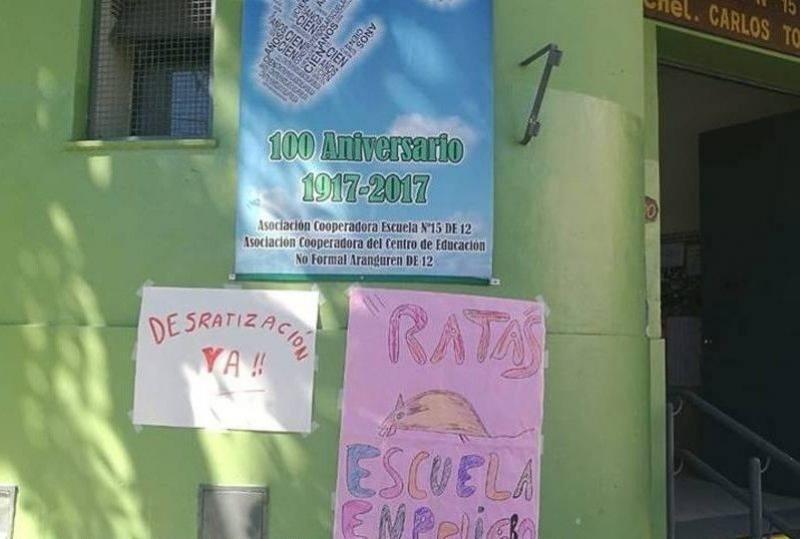 Nº 15
CNEL. CARLOS TO
AÑOS
CIEN
100 Aniversario
1917-2017
Asociación Cooperadora Escuela Nº15 DE 12
Asociación Cooperadora del Centro de Educación
No Formal Aranguren DE 12
DESRATIZACIÓN
YA!!
"RATAS
ESCUELA
EMPELIGRO